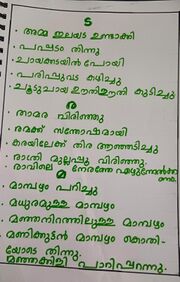 ട
• അമ്മ ഇലയട ഉണ്ടാക്കി
• പഴഷടം തിന്നു
• ചായക്കടയിൽ പോയി
• പരിപ്പുവട കഴിച്ചു
• ചൂടുചായ ഊതിഊതി കുടിച്ചു
ര
• താമര വിരിഞ്ഞു
• രമക്ക് സന്തോഷമായി
• കരയിലേക്ക് തിര ആഞ്ഞടിച്ചു
• രാത്രി മുല്ലപ്പൂ വിരിഞ്ഞു.
• രാവിലെ നേരത്തേ എഴുന്നേൽക്കണം.
മ
• മാമ്പഴം പറിച്ചു
• മധുരമുള്ള മാമ്പഴം
• മഞ്ഞനിറത്തിലുള്ള മാമ്പഴം
• മണിക്കുട്ടൻ മാമ്പഴം കൊതി-
യോടെ തിന്നു.
മഞ്ഞക്കിളി പാറിപ്പറന്നു.